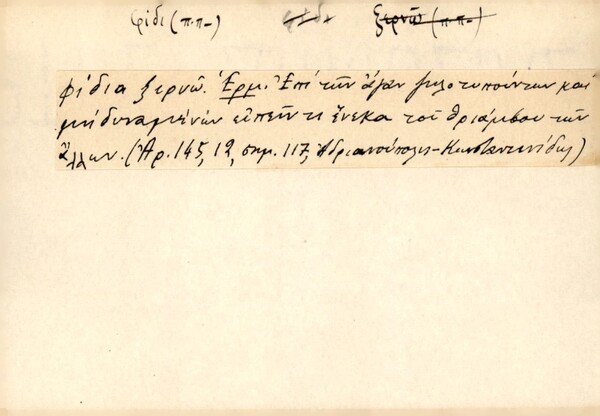 φίδι (π.π-) ξερνῶ (π.π-)
φίδια ξερνῶ. Ἑρμ. Ἐπὶ τῶν ἄγαν ζηλοτυπούντων καὶ
μὴ δυναμένων εἰπεῖν τι ἕνεκα τοῦ θριάμβου τῶν
ἄλλων. (Ἀρ. 145, 12, σημ. 117, Ἀδριανούπολις-Κωνσταντινίδης)